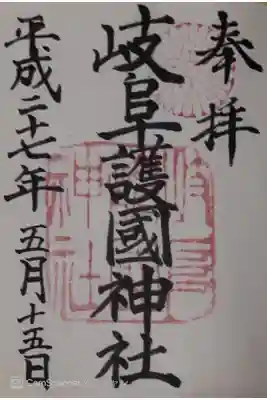 奉拝
岐阜護國神社
平成二十七年 五月十五日
CamScanner